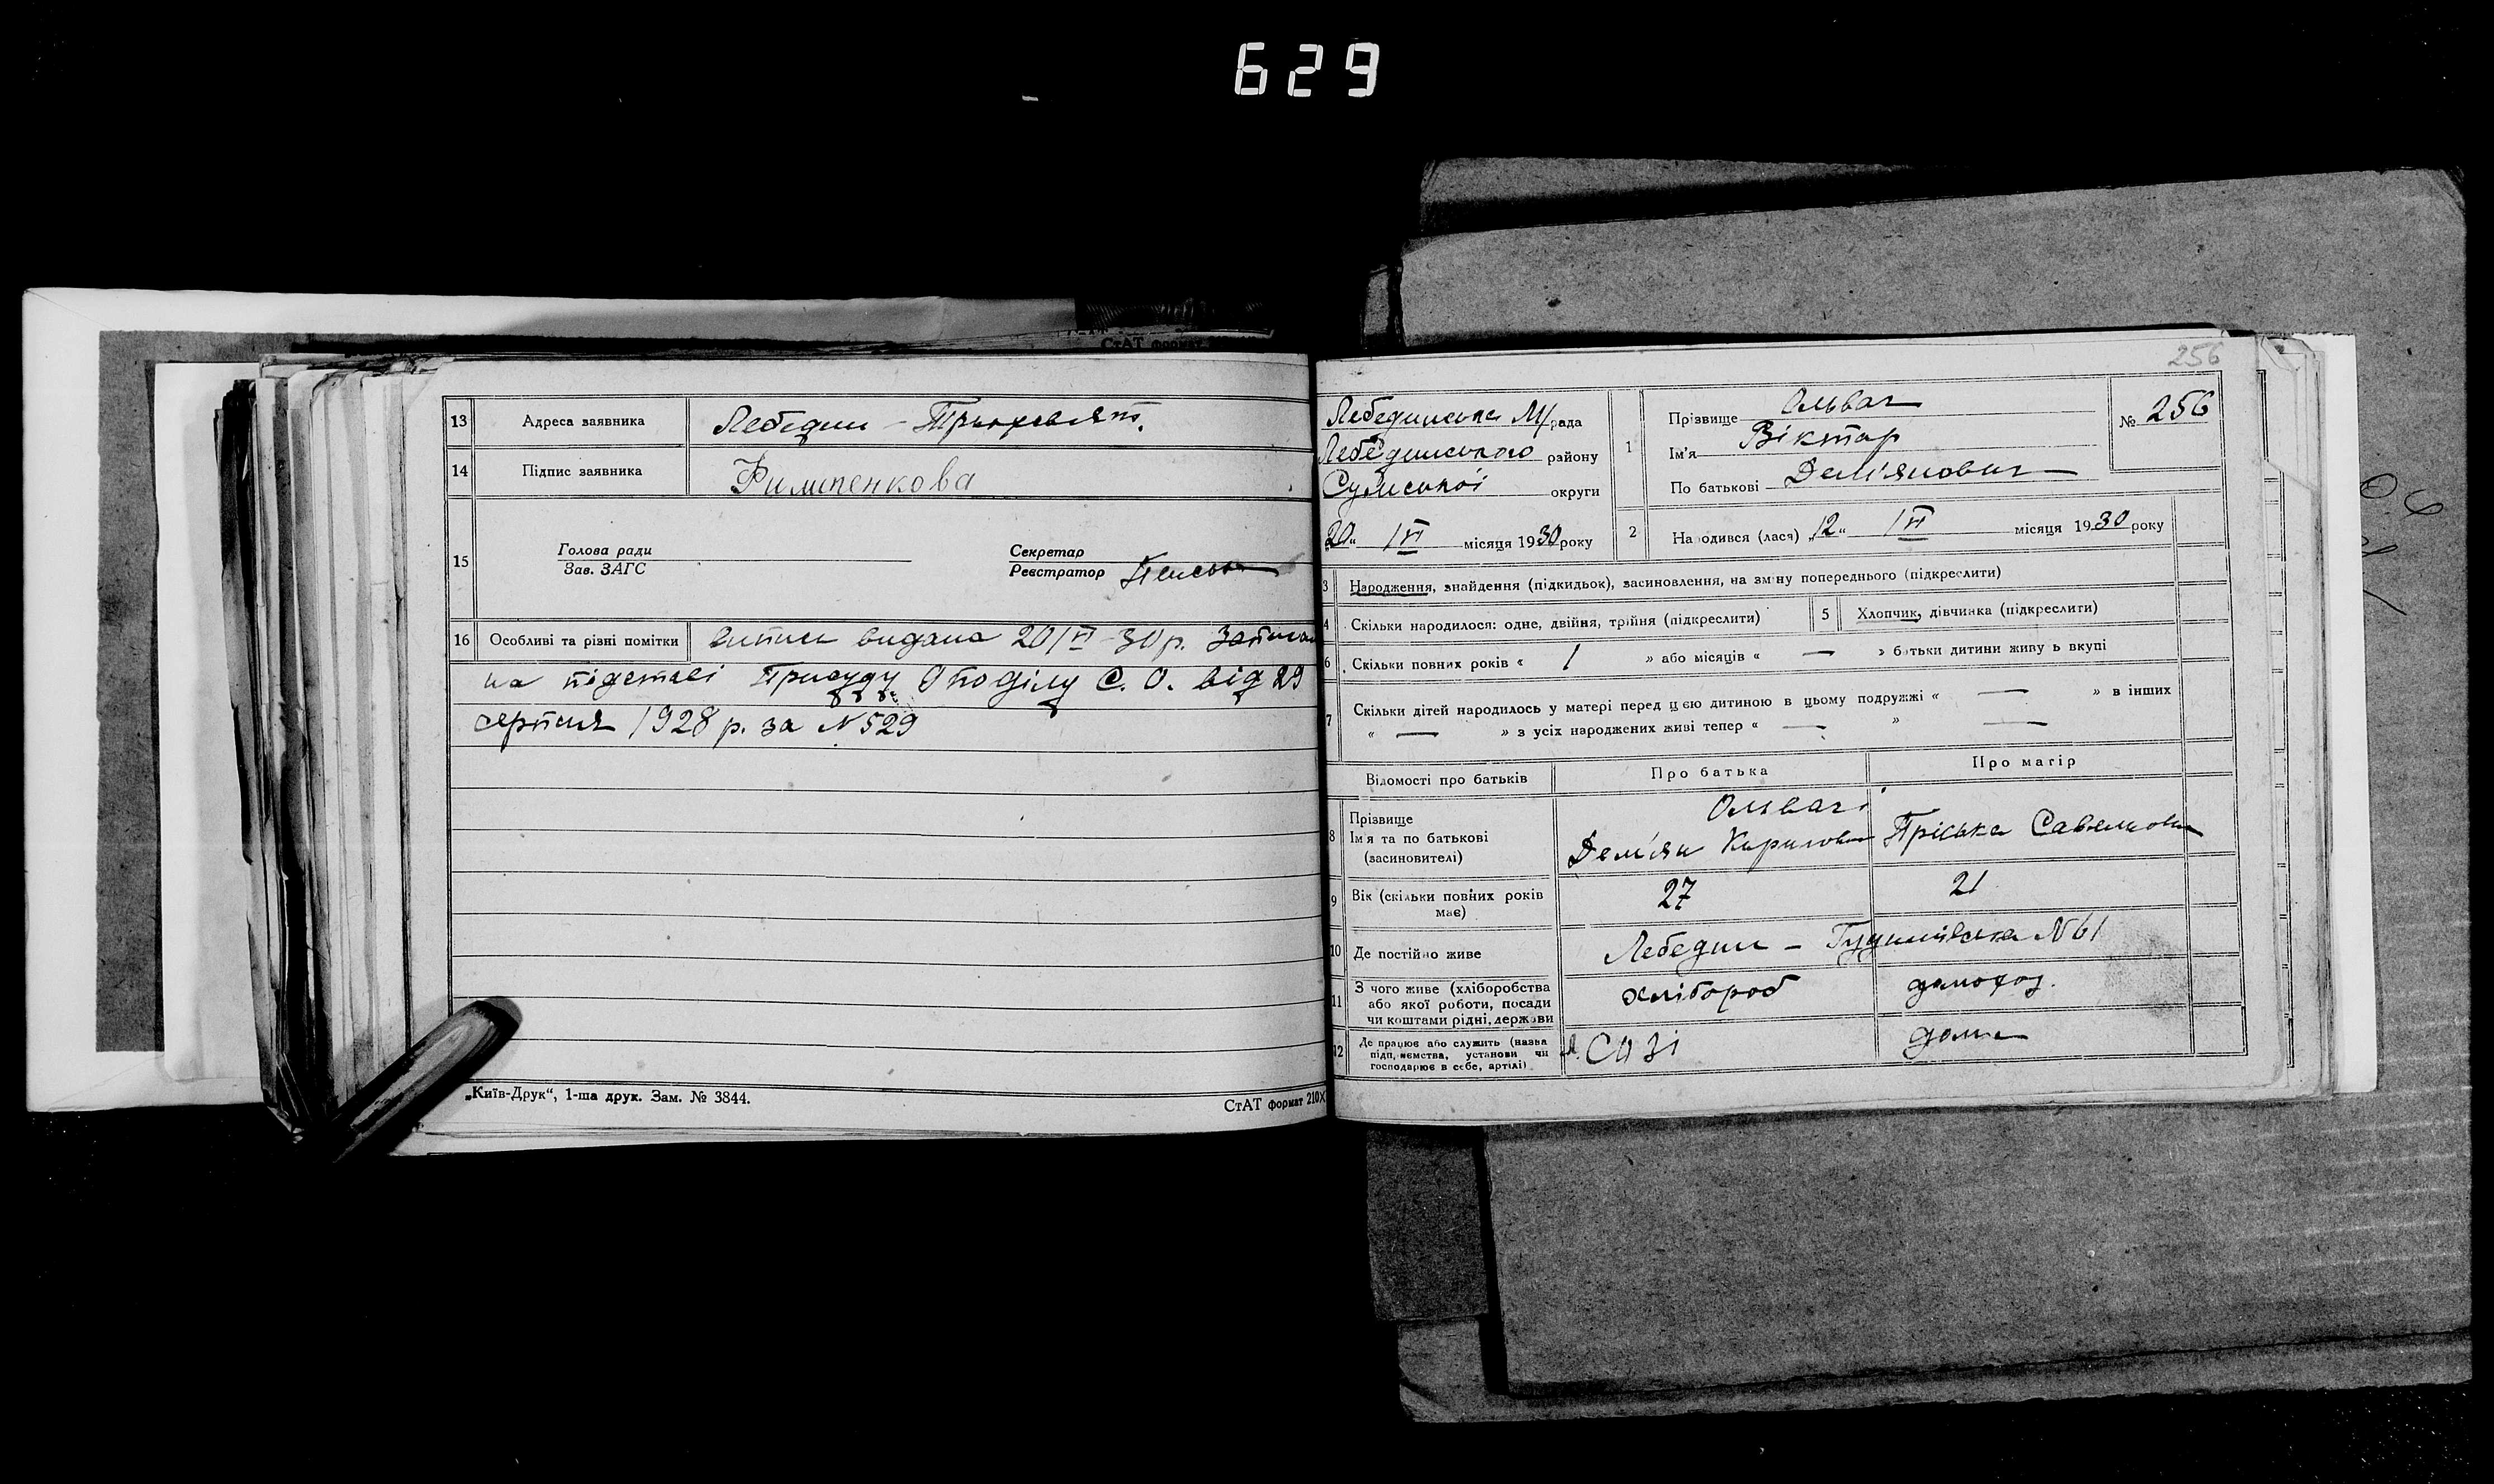 629
СтАТ формат
13 Адреса заявника Лебедин – Трьохсвят.
14 Підпис заявника Филипенкова
15 Голова ради Секретар
Зав. ЗАГС Реєстратор
16 Особливі та різні помітки випись видана 20/VI–30 р. Записан
на підставі Присуду О поділу С. О. від 29
серпня 1928 р. за № 529
„Київ-Друк“, 1-ша друк. Зам. № 3844.
СтАТ формат 210X
256
Лебединська М/рада
Лебединського району
Сумської округи
20“ /VI місяця 1930 року
1 Прізвище Ольвач
Ім'я Віктар
По батькові Дем'янович
№ 256
2 Народився (лася) „12“ /VI місяця 1930 року
3 Народження, знайдення (підкидьок), засиновлення, на зміну попереднього (підкреслити)
4 Скільки народилося: одне, двійня, трійня (підкреслити)
5 Хлопчик, дівчинка (підкреслити)
6 Скільки повних років « 1 » або місяців « — » батьки дитини живуть вкупі
7 Скільки дітей народилось у матері перед цією дитиною в цьому подружжі « — » в інших
« — » з усіх народжених живі тепер « — » —
Відомості про батьків Про батька Про матір
8 Прізвище
Ім'я та по батькові
(засиновителі)
Ольвачі
Дем'ян Кирилович Пріська Савелиовн
9 Вік (скільки повних років має) 27 21
10 Де постійно живе Лебедин – № 61
11 З чого живе (хліборобства
або якої роботи, посади
чи коштами рідні, держави
хлібороб домохоз.
12 Де працює або служить (назва
підприємства, установи чи
господарює в себе, артілі)
СОЗі дома